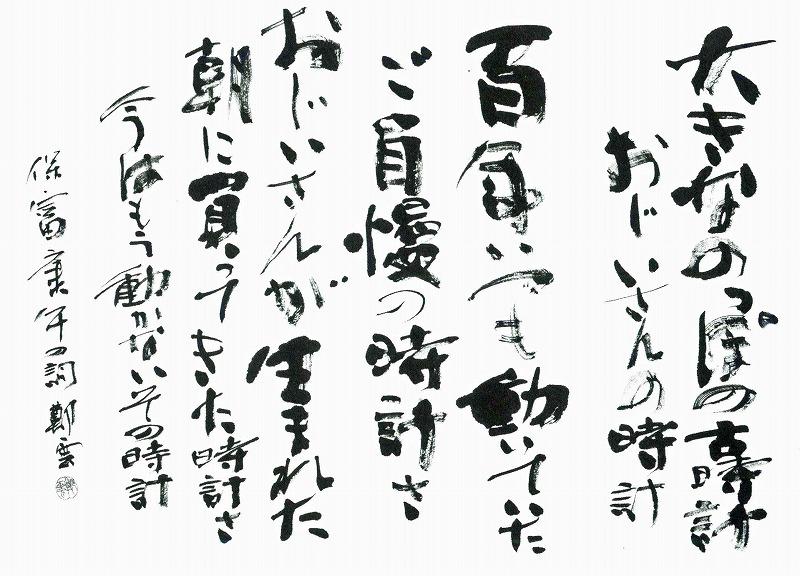 大きなのっぽの古時計
おじいさんの時計
百年いつも動いていた
ご自慢の時計さ
おじいさんが生まれた
朝に買ってきた時計さ
今はもう動かないその時計
保富康午の詞 鄭雲